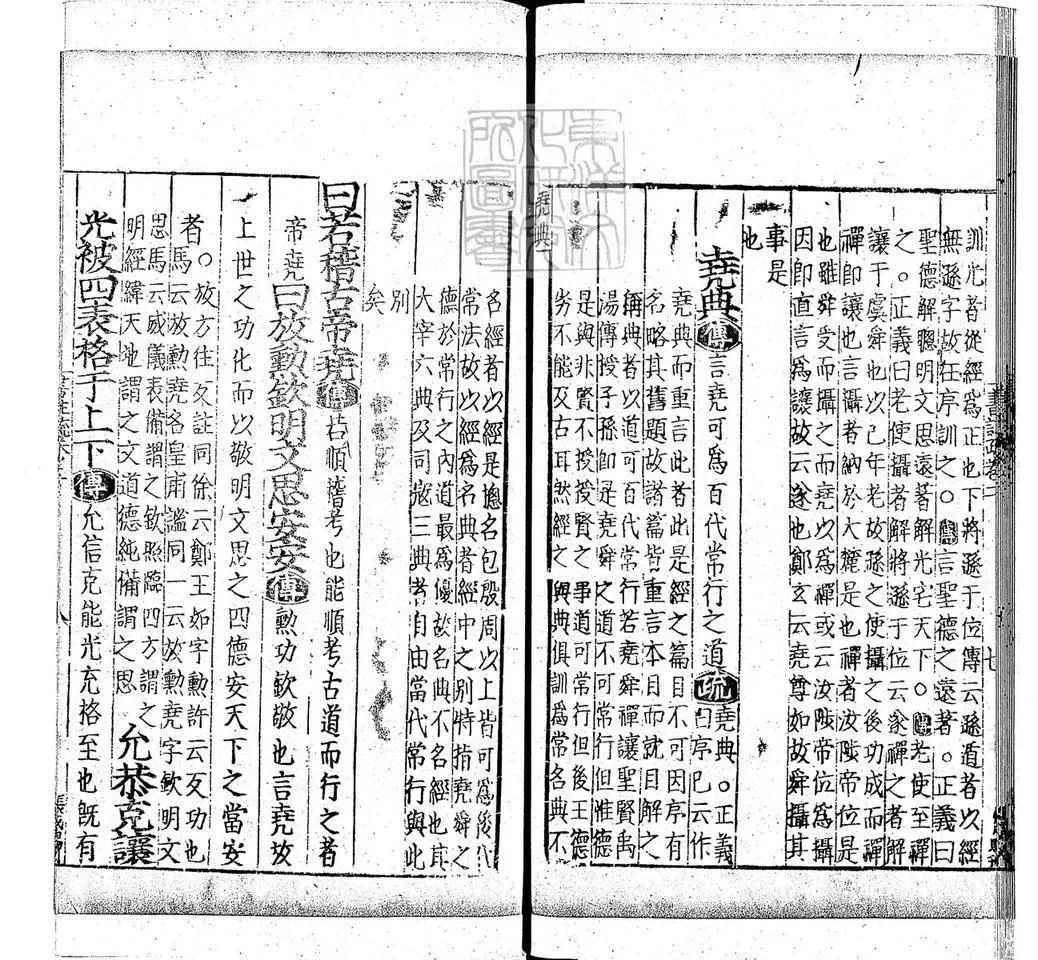 訓光者從經爲正也下將遜于位傳云遜遁者以經
無遜字故在序訓之○傳言聖德之遠著○正義曰
聖德解聰明文思遠著解光宅天下○傳老使至禪
之○正義曰老使攝者解將遜于位云遂禪之者解
讓于虞舜也以己年老故遜之使攝之後功成而禪
禪即讓也言攝者納於大麓是也禪者汝陟帝位是
也雖舜受而攝之而堯以爲禪或云汝陟帝位爲攝
因即直言爲讓故云遂也鄭玄云堯尊如故舜攝其
事是
也
堯典傳言堯可爲百代常行之道疏堯典○正義曰序已云作
堯典而重言此者此是經之篇目不可因序有
名略其舊題故諸篇皆重言本目而就目解之
稱典者以道可百代常行若堯舜禪讓聖賢禹
湯傳授子孫即是堯舜之道不可常行但惟德
是與非賢不授授賢之事道可常行但後王德
劣不能及古耳然經之與典俱訓爲常名典不
堯典
名經者以經是揔名包殷周以上皆可爲後代
常法故以經爲名典者經中之別特指堯舜之
德於常行之內道最爲優故名典不名經也其
大宰六典及司寇三典者自由當代常行與此
別
矣
曰若稽古帝堯傳若順稽考也能順考古道而行之者
帝堯曰放勳欽明文思安安傳勳功欽敬也言堯放
上世之功化而以敬明文思之四德安天下之當安
者○放方往反註同徐云鄭王如字勳許云反功也
馬云放勳堯名皇甫謐同一云放勳堯字欽明文
思馬云威儀表備謂之欽照臨四方謂之
明經緯天地謂之文道德純備謂之思 允恭克讓
光被四表格于上下傳允信克能光充格至也既有